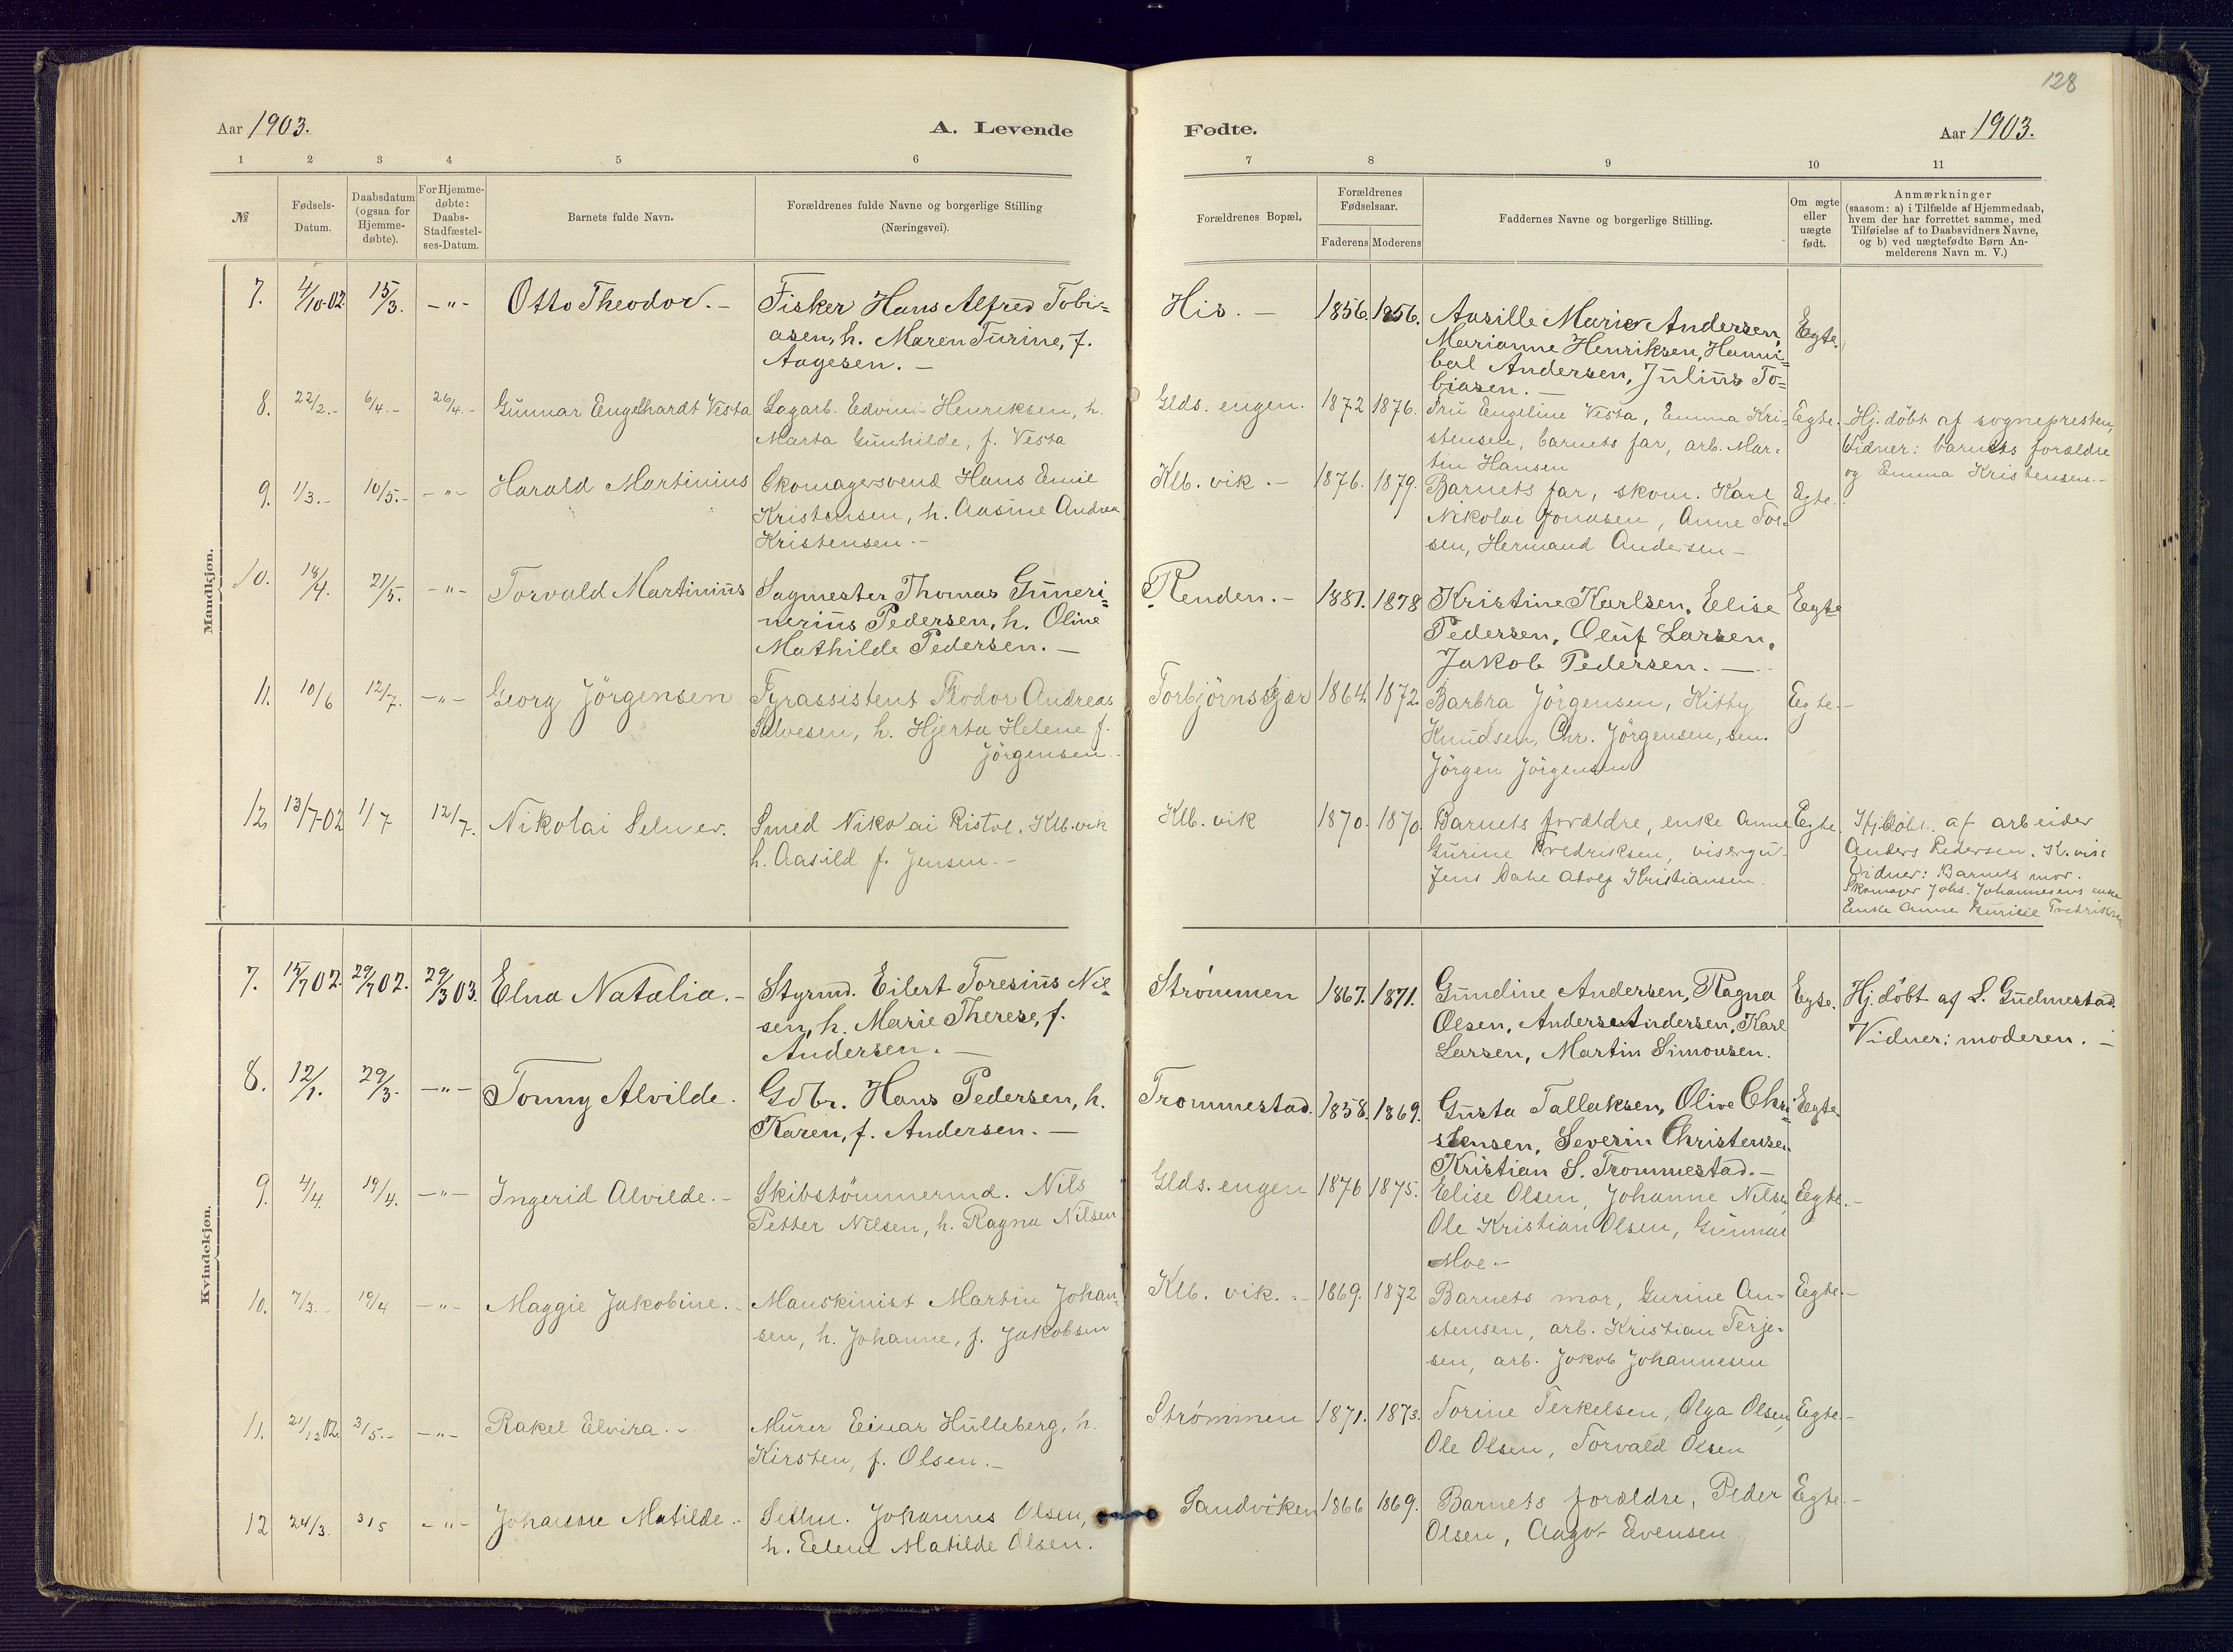 128
Aar 1903.
A. Levende
Fødte.
Aar 1903.
1 2 3 4 5 6
7 8 9 10 11
№
Fødsels-
Datum.
Daabsdatum
(ogsaa for
Hjemme-
døbte).
For Hjemme-
døbte:
Daabs-
Stadfæstel-
ses-Datum.
Barnets fulde Navn.
Forældrenes fulde Navne og borgerlige Stilling
(Næringsvei).
Forældrenes Bopæl.
Forældrenes
Fødselsaar.
Faderens Moderens
Faddernes Navne og borgerlige Stilling.
Om ægte
eller
uægte
født.
Anmærkninger
(saasom: a) i Tilfælde af Hjemmedaab,
hvem der har forrettet samme, med
Tilføielse af to Daabsvidners Navne,
og b) ved uægtefødte Børn An-
melderens Navn m. V.)
Mandkjøn.
7. 4/10-02 15/3. -"- Otto Theodor. - Fisker Hans Alfred Tobi=
asen, h. Maren Turine, f.
Aagesen. -
His. - 1856. 1856. Aasille Marie Andersen,
Marianne Henriksen, Hanni=
bal Andersen, Julius To=
biasen. -
Egte.
8. 22/2.- 6/4.- 26/4.- Gunnar Engelhardt Vesta Sagarb. Edvin Henriksen, h.
Marta Gunhilde, f. Vesta
Glds. engen. 1872 1876. Fru Engeline Vesta, Emma Kri-
stensen, barnets far, arb. Mar-
tin Hansen
Egte. Hj. döbt af sognepresten,
Vidner: barnets forældre
og Emma Kristensen.-
9. 1/3.- 10/5.- -"- Harald Martinius Skomagersvend Hans Emil
Kristensen, h. Aasine Andrea
Kristensen.-
Klb. vik.- 1876. 1879. Barnets far, skom. Karl
Nikolai Jonasen, Anne Tor-
sen, Hermand Andersen-
Egte.
10. 18/4. 21/5. -"- Torvald Martinius Sagmester Thomas Guneri=
nerius Pedersen, h. Oline
Mathilde Pedersen. -
Renden. - 1881. 1878 Kristine Karlsen, Elise
Pedersen, Oluf Larsen,
Jakob Pedersen. -
Egte
11. 10/6 12/7. -"- Georg Jörgensen Fyrassistent Teodor Andreas
Salvesen, h. Hjerta Helene f.
Jörgensen.
Torbjörnsskjær 1864. 1872. Barbra Jörgensen, Kitty
Knudsen, Chr. Jörgensen, sen.
Jörgen Jörgensen
Egte.-
12. 13/7-02 1/7 12/7. Nikolai Selmer. Smed Nikolai Ristol, Klb.vik
h. Aasild f. Jensen.-
Klb. vik 1870. 1870. Barnets forældre, enke Anne
Gurine Fredriksen, visergu-
Jens Dahl Adolf Kristiansen.
Egte. Hj. döbt. af arbeider
Anders Pedersen. K. vik
Vidner: Barnets mor.
Skomager Johs. Johannesens enke
Enke Anne Gurine Fredriksen
Kvindekjøn.
7. 15/7 02. 29/7 02. 29/3 03. Elna Natalia. - Styrmd. Eilert Toresius Nil=
sen, h. Marie Therese, f.
Andersen. -
Strømmen 1867. 1871. Gundine Andersen, Ragna
Olsen, Anders Andersen, Karl
Larsen, Martin Simonsen.
Egte. Hj. döbt af L. Gudmestad.
Vidner: moderen. -
8. 12/1. 29/3. -"- Tonny Alvilde. Gdbr. Hans Pedersen, h.
Karen, f. Andersen. -
Trommestad. 1858. 1869. Gusta Tallaksen, Olive Chri=
stensen, Severin Christensen
Kristian S. Trommestad.-
Egte.
9. 4/4. 19/4. -"- Ingerid Alvilde.- Skibstömmermd. Nils
Petter Nilsen, h. Ragna Nilsen
Glds. engen 1876 1875. Elise Olsen, Johanne Nilsen,
Ole Kristian Olsen, Gunnar
Moe.-
Egte.-
10. 7/3.- 19/4 -"- Maggie Jakobine.- Manskinist Martin Johan-
sen, h. Johanne, f. Jakobsen
Klb. vik.- 1869. 1872 Barnets mor, Gurine An-
stensen, arb. Kristian Terje-
sen, arb. Jakob Johannesen
Egte.-
11. 21/12 02. 3/5.- -"- Rakel Elvira.- Murer Einar Hulleberg, h.
Kirsten, f. Olsen.-
Strømmen 1871. 1873. Torine Terkelsen, Olga Olsen,
Ole Olsen, Torvald Olsen
Egte.-
12 24/3. 3/5 -"- Johanne Matilde.- Johannes Olsen,
h. Elene Matilde Olsen.
Sandviken 1866 1869. Barnets forældre, Peder
Olsen, Aagot Evensen
Egte.-